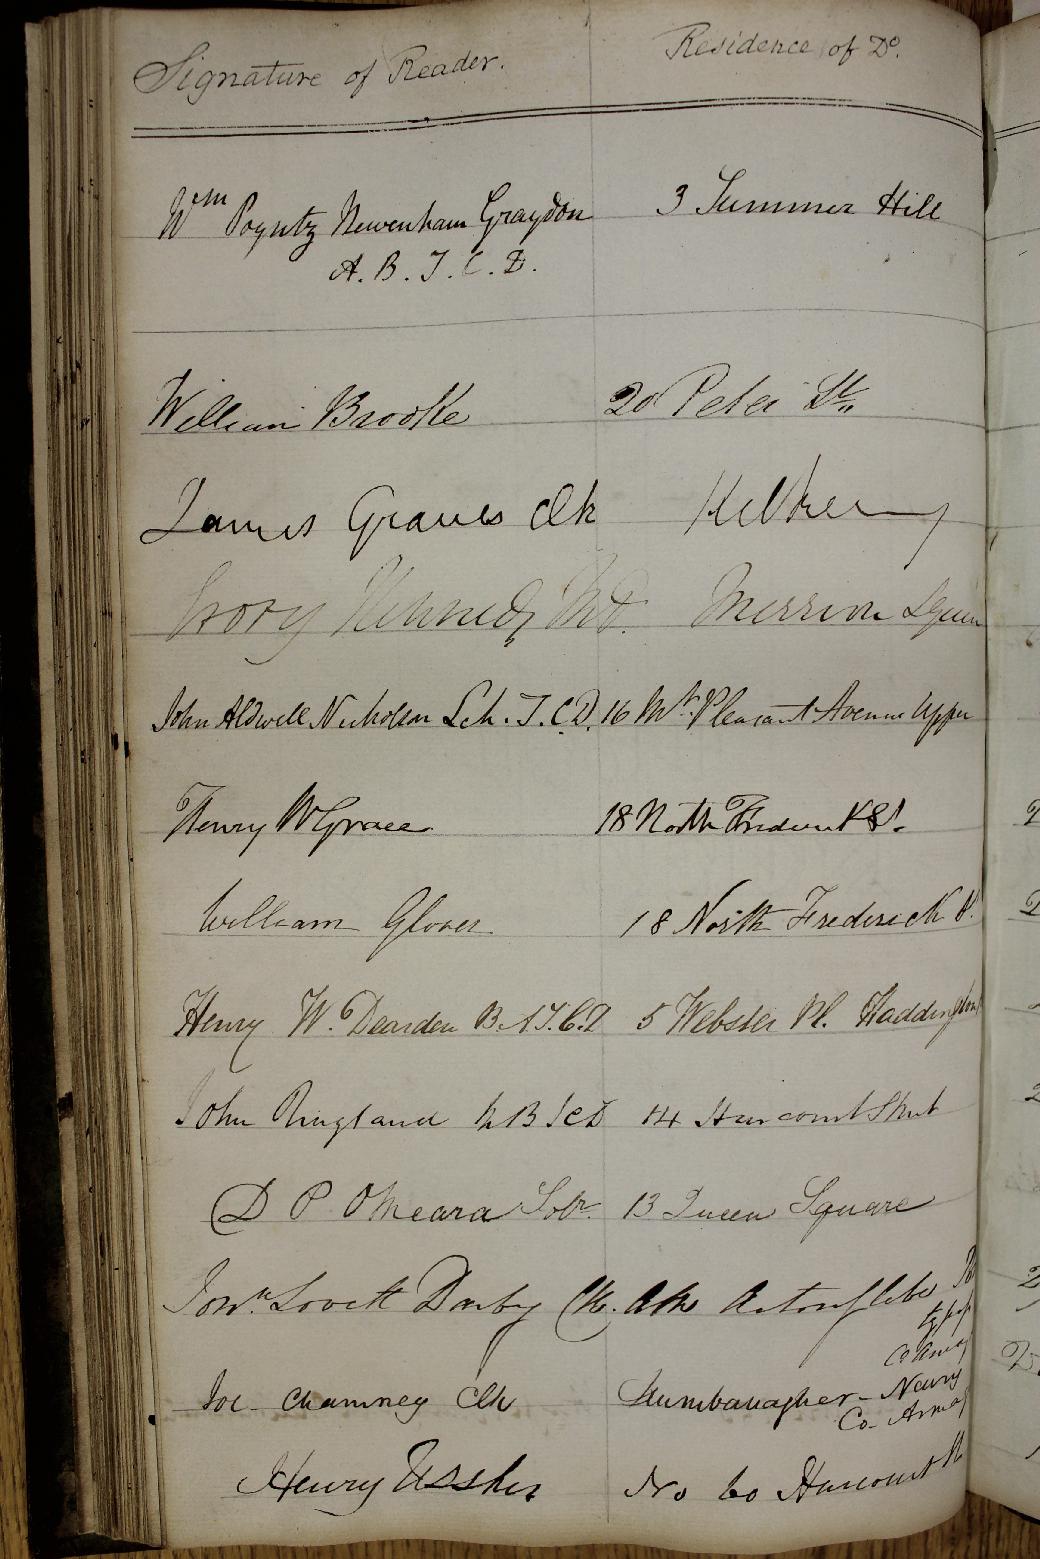 Signature of Reader. Residence of Do.
Wm Poyntz Newenham Graydon 3 Summer Hill
A. B. T. C. D.
William Brooke 20 Peter St.
James Graves Clk Kilkenny
Evory Kennedy MD. Merrion Square
John Aldwell Nicholson Sch. T. C. D. 16 Mt. Pleasant Avenue Upper
Henry W Grace 18 North Frederick St.
William Glover 18 North Frederick St.
Henry W. Dearden B. A T. C. D 5 Webster Pl. Haddington
John Ringland MB TCD 14 Harcourt Street
D P OMeara Solr. 13 Queen Square
Jonn. Lovett Darby Clk. Acton Glebe
Co Arma
Joe Chamney Clk Drumbanagher - Newry
Co- Armag
Henry Ussher No 60 Harcourt St